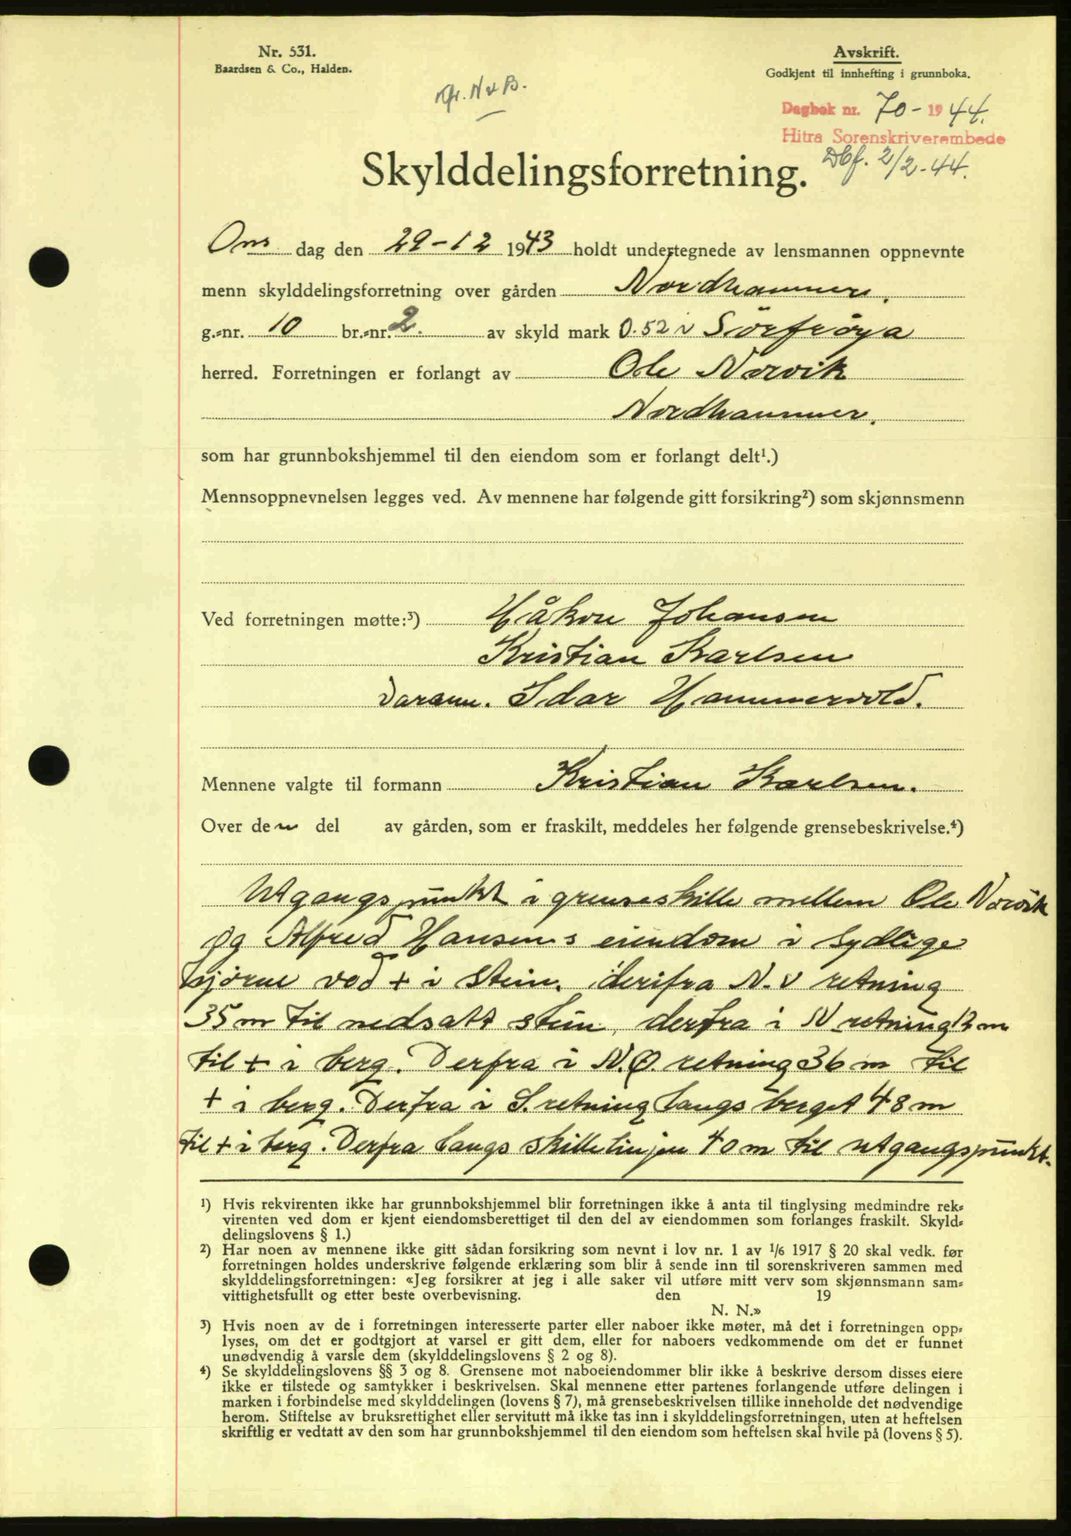 Nr. 531.
Baardsen & Co., Halden.
Avskrift.
Godkjent til innhefting i grunnboka.
Dagbok nr. 70 - 1944.
Hitra Sorenskriverembede
Dbf. 2/2-44.
Skylddelingsforretning.
Ons dag den 29-12 1943 holdt undertegnede av lensmannen oppnevnte
menn skylddelingsforretning over gården Nordhammer.
g.-nr. 10 br.-nr. 2. av skyld mark 0.52 i Sörfröya
herred. Forretningen er forlangt av Ole Norvik
Nordhammer.
som har grunnbokshjemmel til den eiendom som er forlangt delt¹.)
Mennsoppnevnelsen legges ved. Av mennene har følgende gitt forsikring²) som skjønnsmenn
Ved forretningen møtte:³) Håkon Johansen
Kristian Karlsen
varam. Idar Hammervold.
Mennene valgte til formann Kristian Karlsen.
Over den del av gården, som er fraskilt, meddeles her følgende grensebeskrivelse.⁴)
Utgangspunkt i grenseskille mellem Ole Norvik
og Alfred Hansens eiendom i sydlige
hjørne ved + i stein. derifra N.V retning
35 m til nedsatt stein, derfra i N retning 12 m
til + i berg. Derfra i N.Ø. retning 36 m til
+ i berg. Derfra i S. retning langs berget 48 m
til + i berg. Derfra langs skillelinjen 40 m til utgangspunkt.
¹) Hvis rekvirenten ikke har grunnbokshjemmel blir forretningen ikke å anta til tinglysing medmindre rek-
virenten ved dom er kjent eiendomsberettiget til den del av eiendommen som forlanges fraskilt. Skyld-
delingslovens § 1.)
²) Har noen av mennene ikke gitt sådan forsikring som nevnt i lov nr. 1 av 1/6 1917 § 20 skal vedk. før
forretningen holdes underskrive følgende erklæring som blir å sende inn til sorenskriveren sammen med
skylddelingsforretningen: «Jeg forsikrer at jeg i alle saker vil utføre mitt verv som skjønnsmann sam-
vittighetsfullt og etter beste overbevisning. den 19
N. N.»
³) Hvis noen av de i forretningen interesserte parter eller naboer ikke møter, må det i forretningen opp-
lyses, om det er godtgjort at varsel er gitt dem, eller for naboers vedkommende om det er funnet
unødvendig å varsle dem (skylddelingslovens § 2 og 8).
⁴) Se skylddelingslovens §§ 3 og 8. Grensene mot naboeiendommer blir ikke å beskrive dersom disses eiere
ikke er tilstede og samtykker i beskrivelsen. Skal mennene etter partenes forlangende utføre delingen i
marken i forbindelse med skylddelingen (lovens § 7), må grensebeskrivelsen tillike inneholde det nødvendige
herom. Stiftelse av bruksrettighet eller servitutt må ikke tas inn i skylddelingsforretningen, uten at heftelsen
skriftlig er vedtatt av den som har grunnbokshjemmel til den eiendom som heftelsen skal hvile på (lovens § 5).